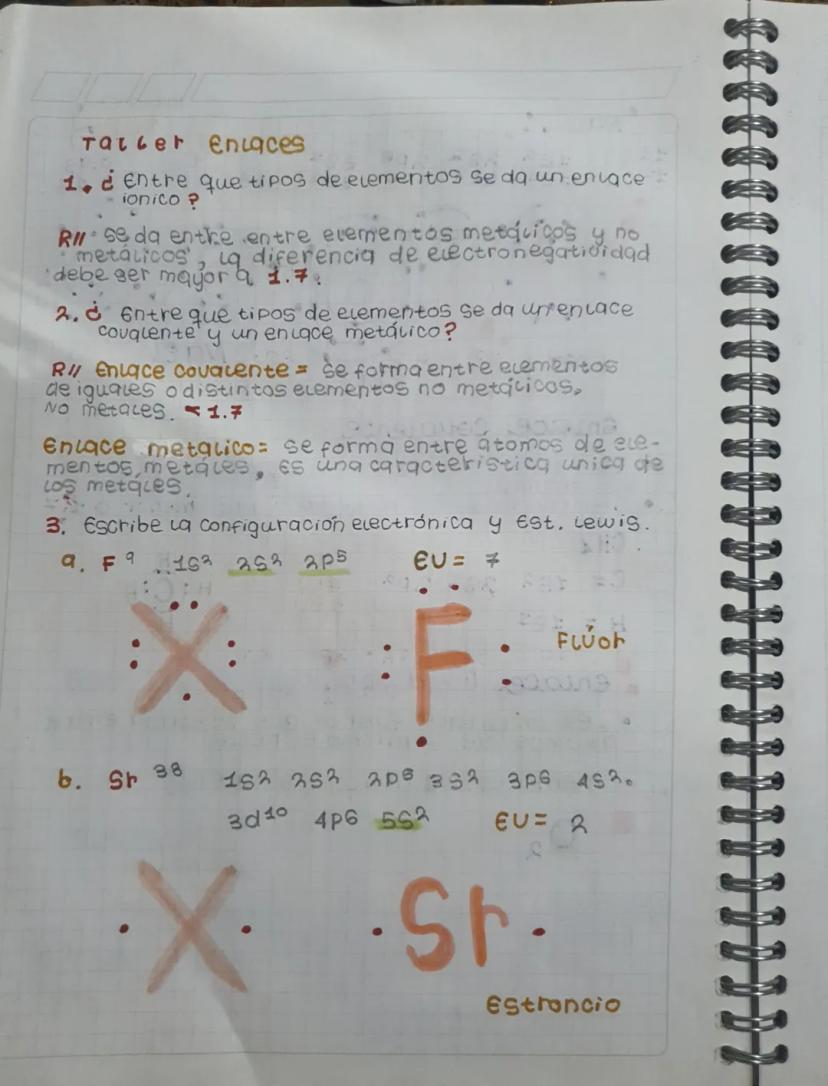 Taller Enlaces
1. ¿ Entre que tipos de elementos se da un enlace
ionico ?
R// se da entre entre elementos metálicos y no
metálicos, la diferencia de electronegatividad
debe ser mayor a 1.7.
2. ¿ Entre que tipos de elementos se da un enlace
covalente y un enlace metálico?
R// Enlace covalente = se forma entre elementos
de iguales o distintos elementos no metálicos,
No metales. < 1.7
Enlace metalico = se forma entre átomos de ele-
mentos metáles, Es una característica unica de
los metales.
3. Escribe la configuración electrónica y Est. Lewis.
a. F 9 1s2 2s2 2p5 EV = 7
X F Flúor
b. Sr 38 1s2 2s2 2p6 3s2 3p6 4s2.
3d10 4p6 5s2 EV = 2
X Sr
Estroncio